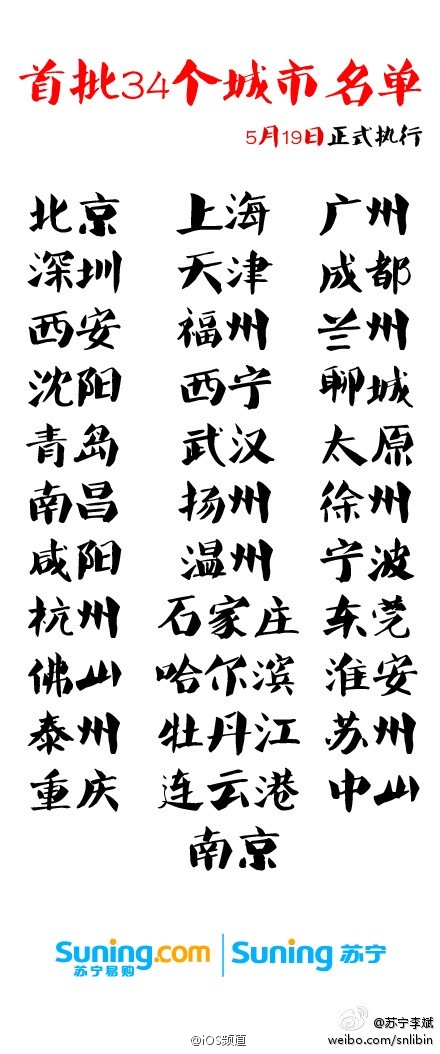 首批34个城市名单
5月19日正式执行
北京 上海 广州
深圳 天津 成都
西安 福州 兰州
沈阳 西宁 聊城
青岛 武汉 太原
南昌 扬州 徐州
咸阳 温州 宁波
杭州 石家庄 东莞
佛山 哈尔滨 淮安
泰州 牡丹江 苏州
重庆 连云港 中山
南京
Suning.com Suning 苏宁
苏宁易购
@苏宁李斌
@iOS频道
weibo.com/snlibin